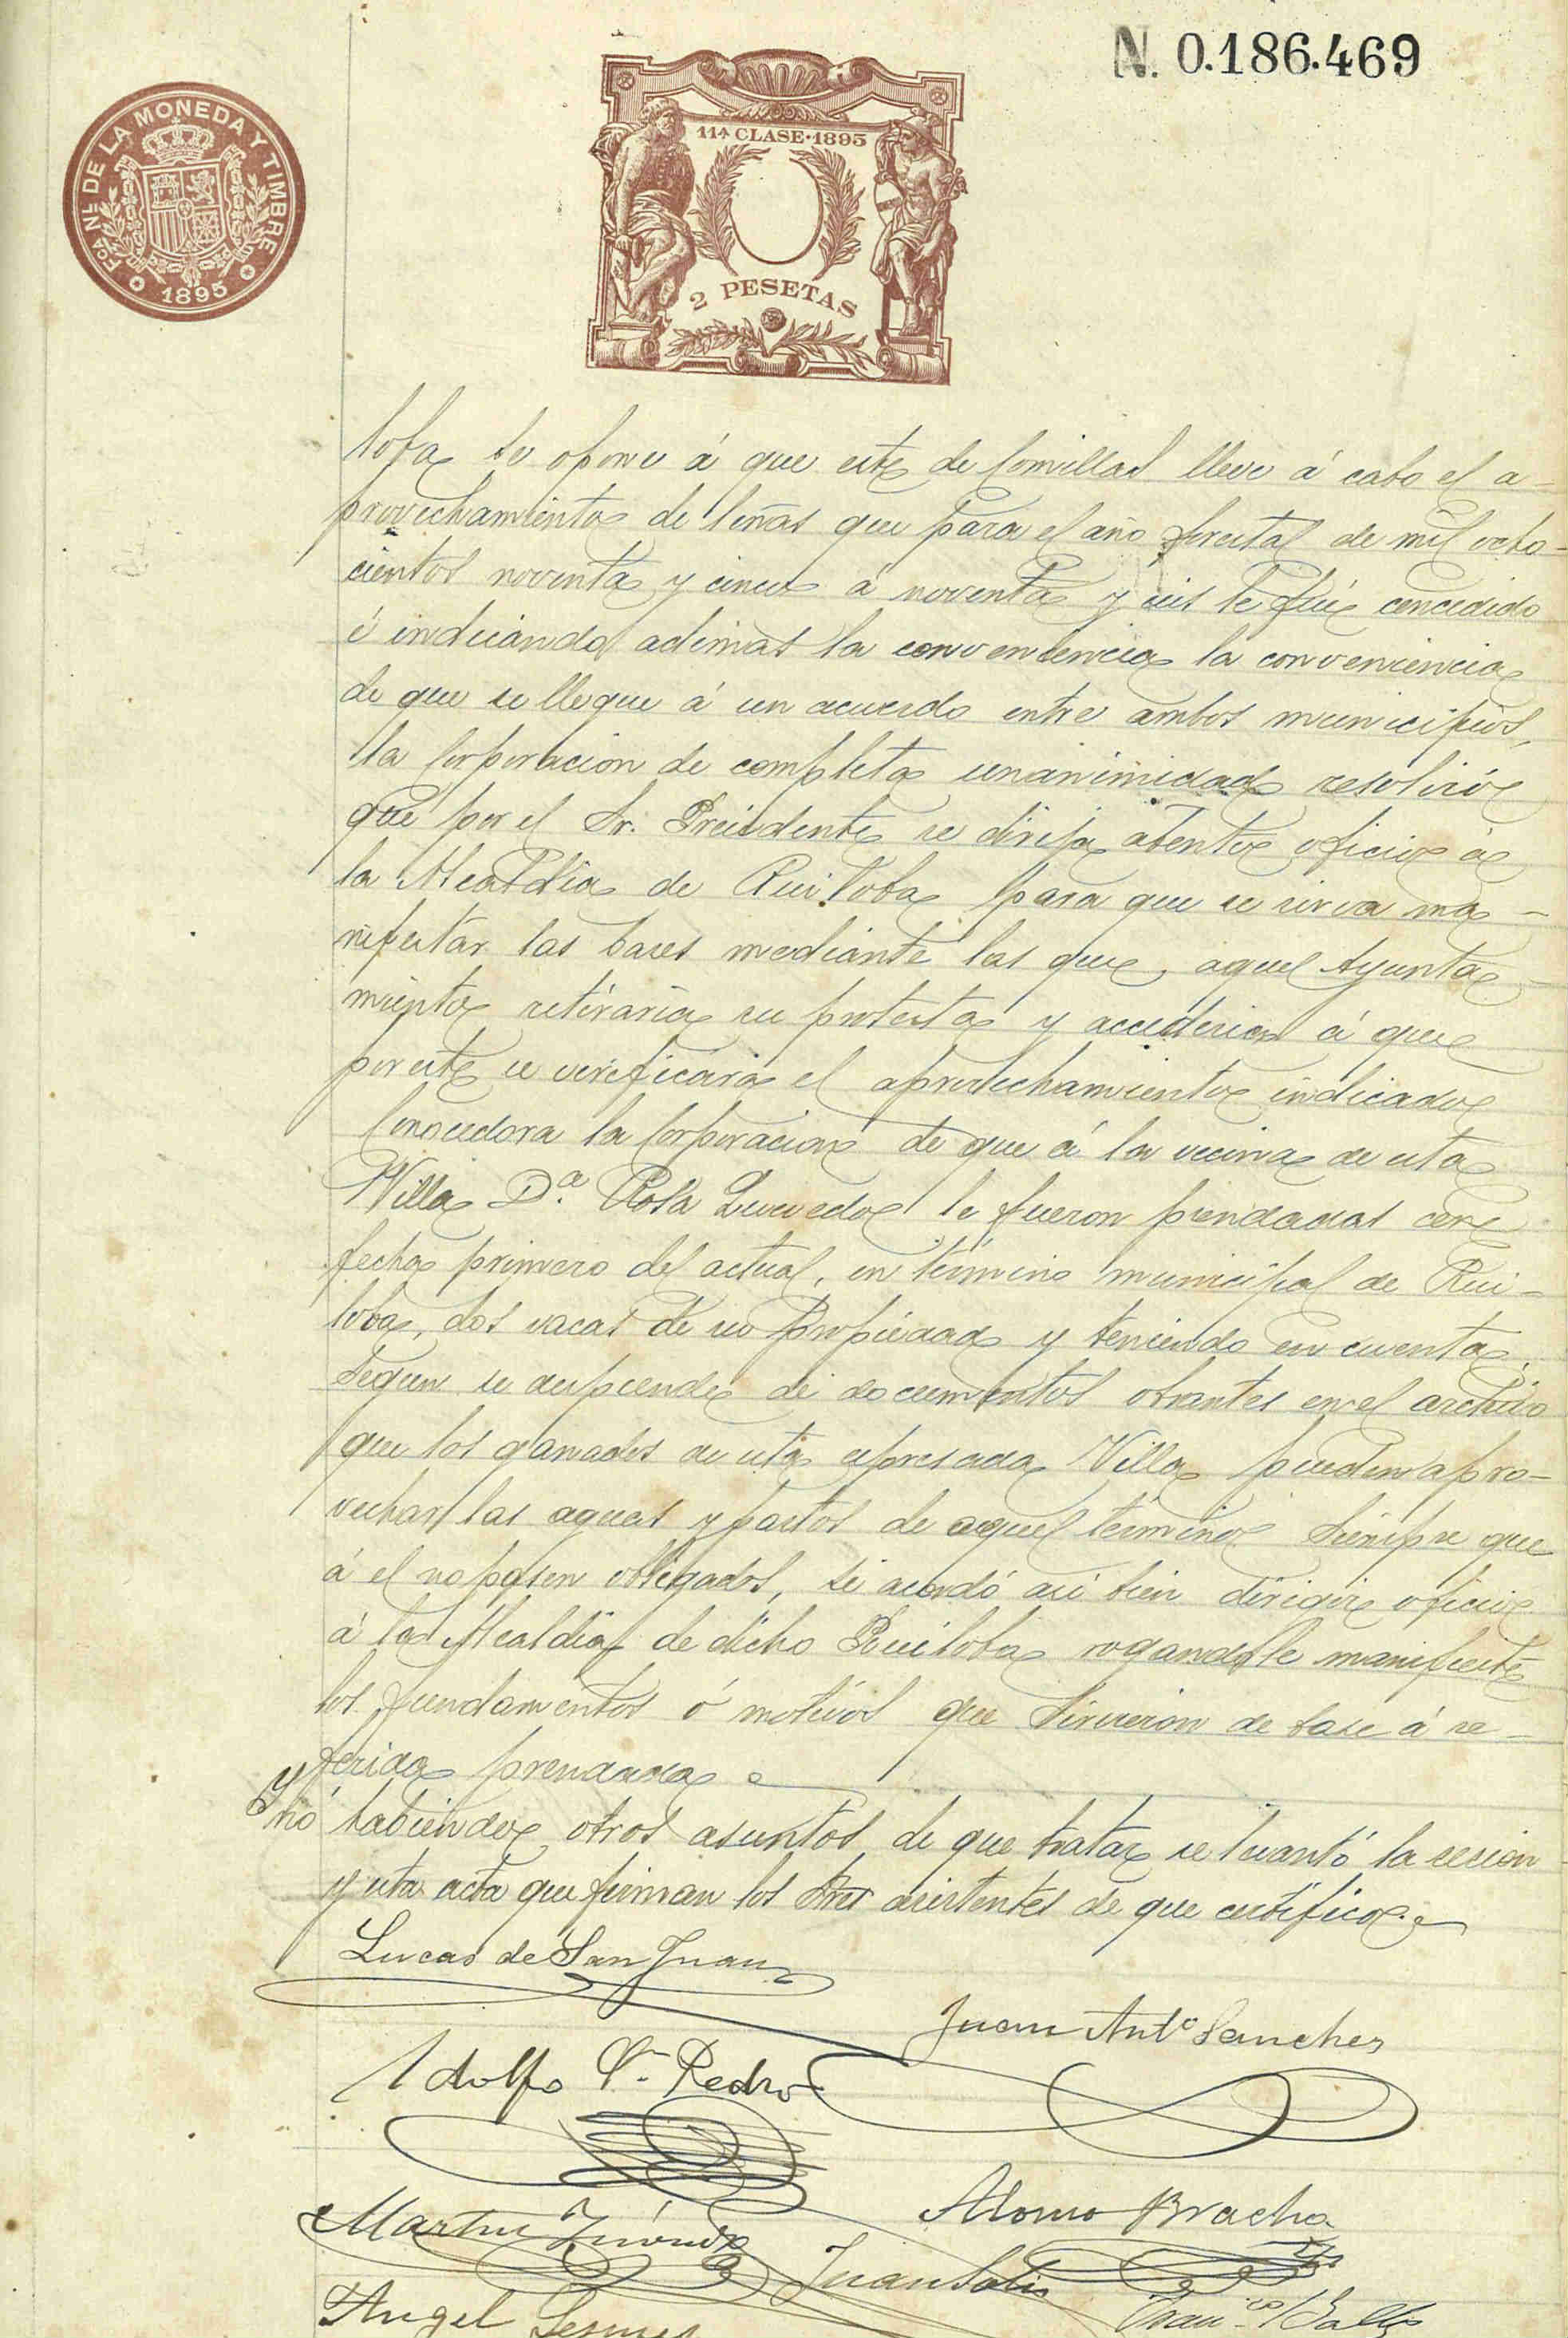 N. 0.186.469
FCA. NL. DE LA MONEDA Y TIMBRE
1895
11ª CLASE·1895
2 PESETAS
loba se opone á que este de Comillas lleve á cabo el a-
provechamiento de leñas que para el año forestal de mil ocho-
cientos noventa y cinco á noventa y seis le fué concedido
é indicando además la convenlencia la conveniencia
de que se llegue á un acuerdo entre ambos municipios,
la Corporacion de completa unanimidad resolvió
que por el Sr. Presidente se dirija atento oficio á
la Alcaldia de Ruiloba para que se sirva ma-
nifestar las bases mediante las que, aquel Ayunta-
miento retiraria su protesta y accederia á que
por este se verificára el aprovechamiento indicado
Conocedora la Corporacion de que á la vecina de esta
Villa D.ª Rosa Quevedo le fueron prendadas con
fecha primero del actual, en término municipal de Rui-
loba, dos vacas de su propiedad y teniendo en cuenta,
segun se desprende de documentos obrantes en el archivo
que los ganados de esta espresada Villa pueden apro-
vechar las aguas y pastos de aquel término siempre que
á el no pasen obligados, se acordó asi bien dirigir oficio
á la Alcaldia de dicho Ruiloba rogandole manifieste
los fundamentos ó motivos que sirvieron de base á re-
ferida prendada
Y nó habiendo otros asuntos de que tratar se levantó la sesion
y esta acta que firman los Sres asistentes de que certifico.
Lucas de San Juan
Juan Antº Sanchez
Adolfo Sn. Pedro
Alonso Bracho
Martin
Juan Solis
Angel